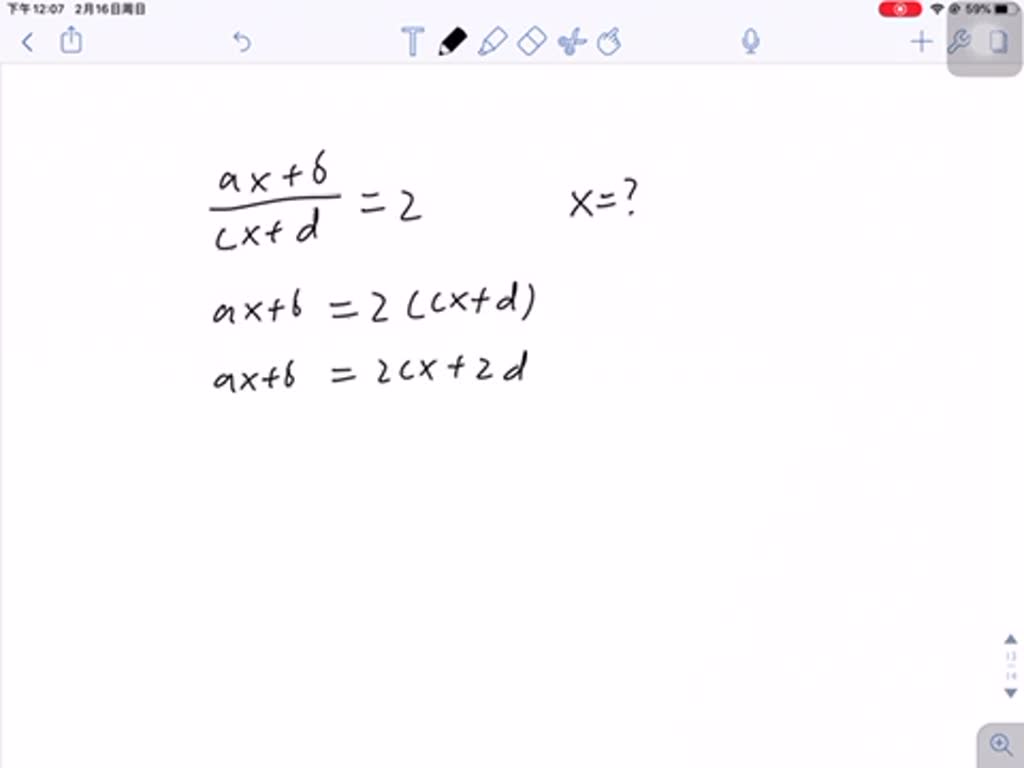 下午12:07 2月16日周日 59%
T
ax+b
cx+d = 2 x=?
ax+b = 2(cx+d)
ax+b = 2cx+2d
13
14